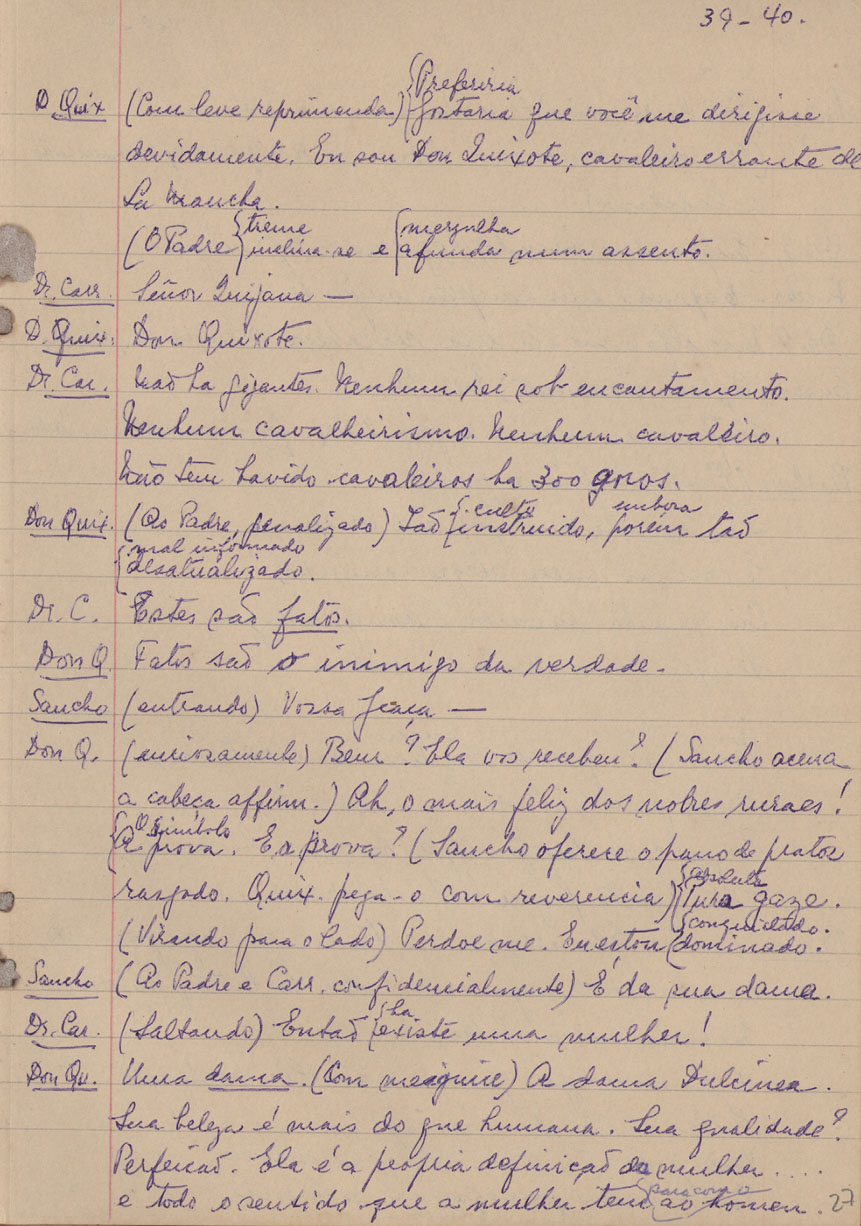 39-40.
{Preferiria
D. Quix (Com leve reprimenda) {Gostaria que você me dirigisse
devidamente. Eu sou Don Quixote, cavaleiro errante de
La Mancha.
{treme {mergulha
(O Padre {inclina-se e {afunda num assento.
Dr. Carr. Señor Quijana —
D. Quix. Don Quixote.
Dr. Car. Não ha gigantes. Nenhum rei sob encantamento.
Nenhum cavalheirismo. Nenhum cavaleiro.
Não tem havido cavaleiros ha 300 anos.
{culto embora
Don Quix. (Ao Padre, penalizado) Tão {instruido, porém tão
{mal informado
desatualizado.
Dr. C. Estes são fatos.
Don Q. Fatos são o inimigo da verdade.
Sancho (entrando) Vossa Graça —
Don Q. (anciosamente) Bem? Ela vos recebeu? (Sancho acena
a cabeça affirm.) Ah, o mais feliz dos nobres ruraes!
{O simbolo
{A prova. E a prova? (Sancho oferece o pano de pratos
rasgado. Quix. pega-o com reverencia) {Pura gaze.
{absoluta
{conquistado.
(Virando para o lado) Perdoe me. Eu estou {dominado.
Sancho (Ao Padre e Carr. confidencialmente) E da sua dama.
{ha
Dr. Car. (Saltando) Então {existe uma mulher!
Don Qu. Uma dama. (Com meiguice) A dama Dulcinea.
Sua beleza é mais do que humana. Sua qualidade?
Perfeicão. Ela é a propria definição da mulher ....
e todo o sentido que a mulher tem ao homem.
(para com o
27